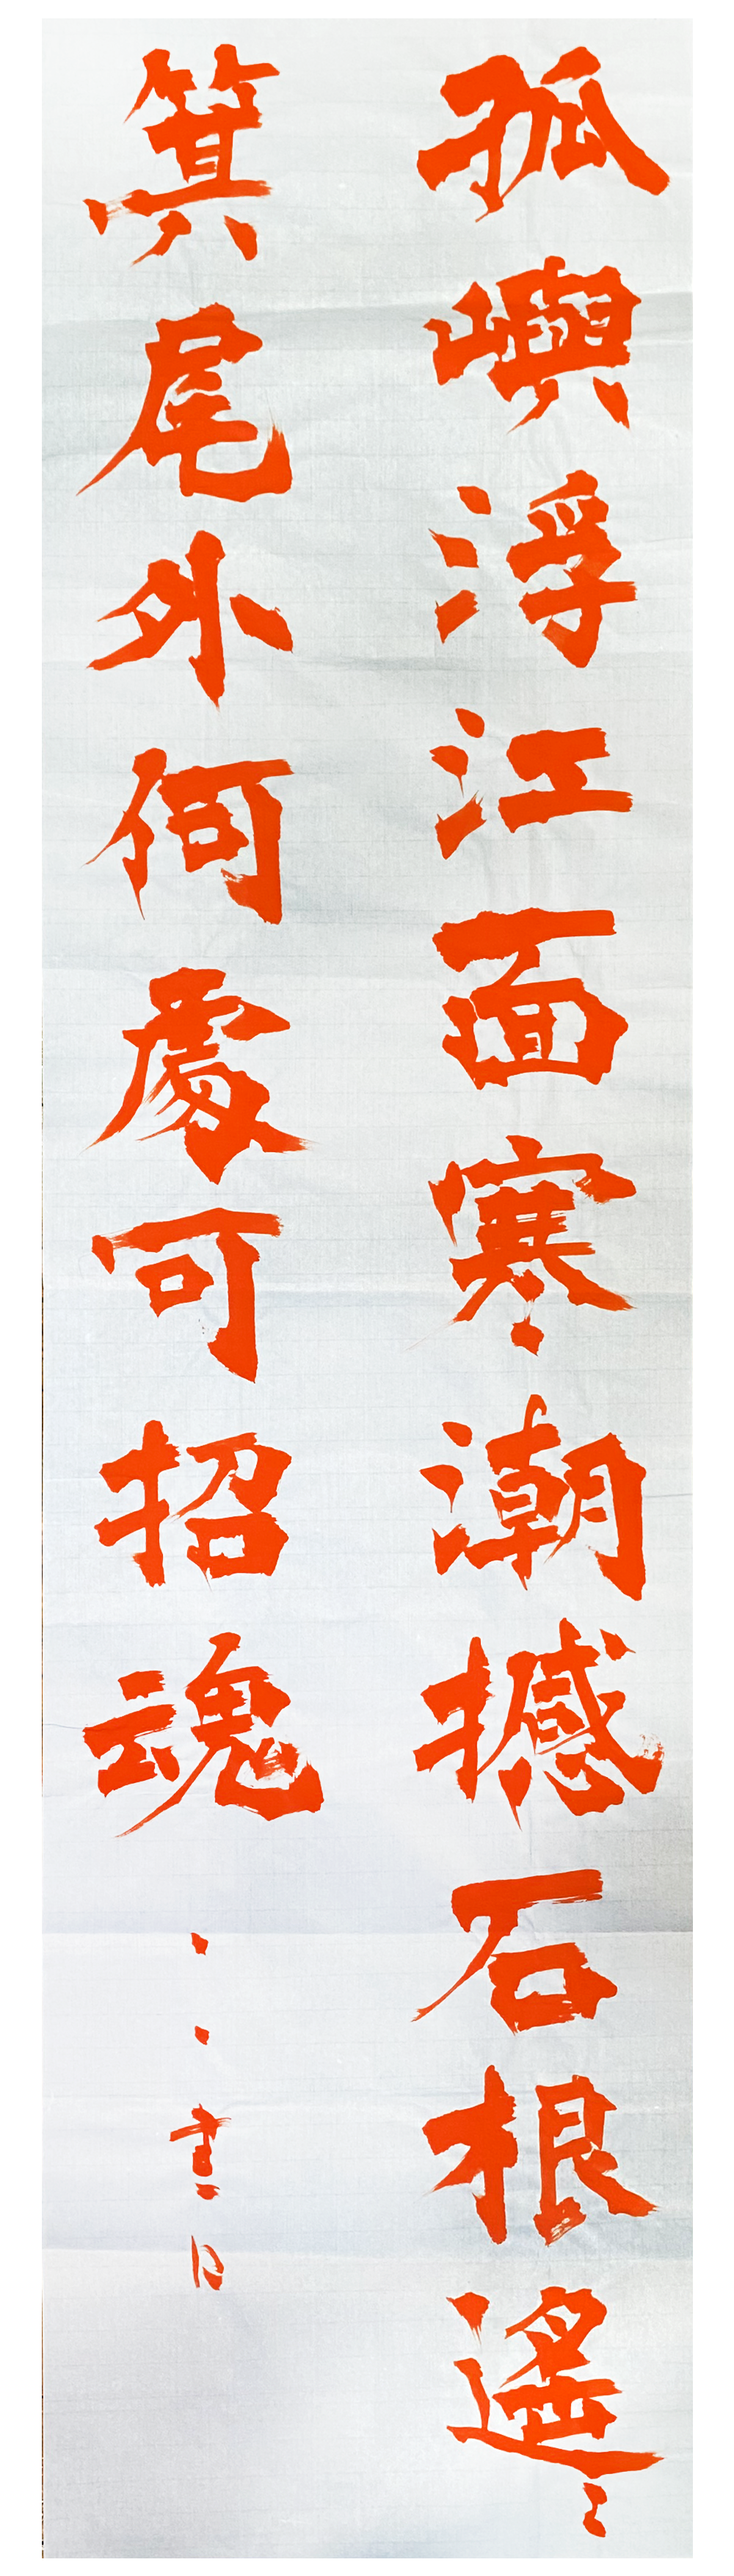 孤嶼浮江面寒潮撼石根遙〻
箕尾外何處可招魂